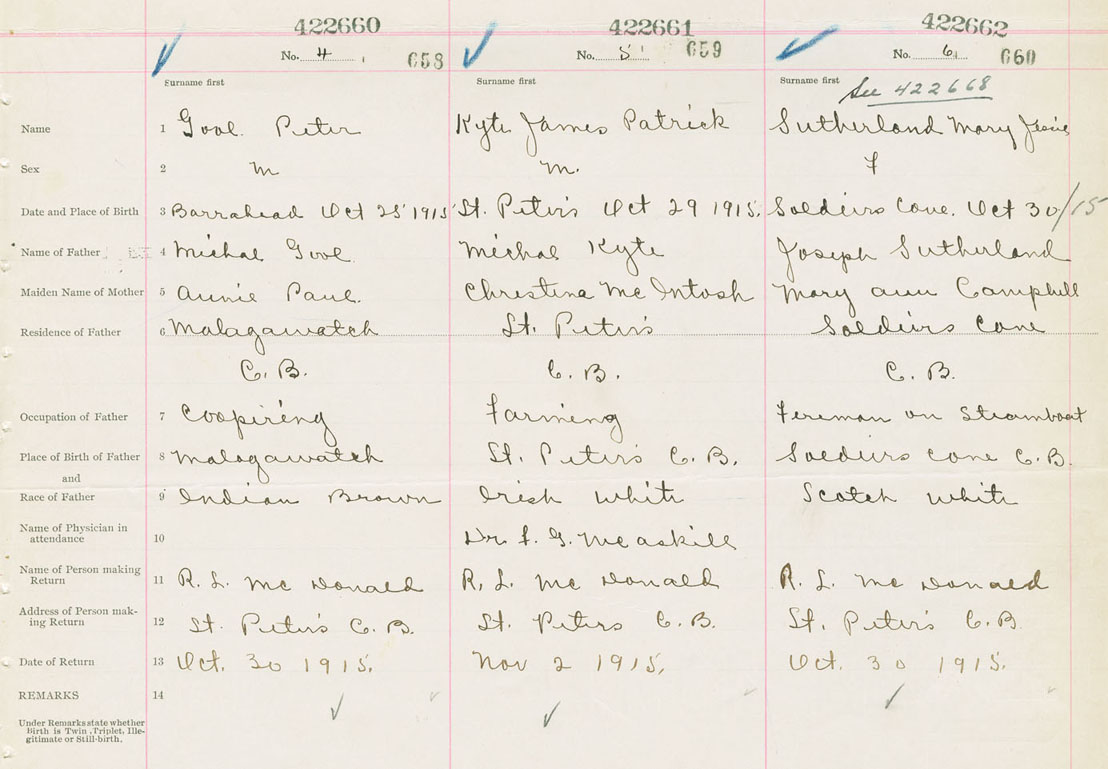 422660 422661 422662
No. 4 658 No. 5 659 No. 6 660
Surname first Surname first Surname first
See 422668
Name 1 Gool Peter Kyte James Patrick Sutherland Mary Jessie
Sex 2 M M. F
Date and Place of Birth 3 Barrahead Oct 25 1915 St. Peter's Oct 29 1915. Soldiers Cove. Oct 30/15
Name of Father 4 Michael Gool. Michael Kyte Joseph Sutherland
Maiden Name of Mother 5 Annie Paul. Christina McIntosh Mary Ann Campbell
Residence of Father 6 Malagawatch St. Peter's Soldiers Cove
C. B. C. B. C. B.
Occupation of Father 7 Coopering Farming Fireman on Steamboat
Place of Birth of Father 8 Malagawatch St. Peter's C. B. Soldiers Cove C. B.
and
Race of Father 9 Indian Brown Irish White Scotch White
Name of Physician in
attendance 10 Dr. L. G. McAskill
Name of Person making
Return 11 R. L. McDonald R. L. McDonald R. L. McDonald
Address of Person mak-
ing Return 12 St. Peter's C. B. St. Peters C. B. St. Peter's C. B.
Date of Return 13 Oct. 30 1915. Nov 2 1915. Oct. 30 1915.
REMARKS 14
Under Remarks state whether
Birth is Twin, Triplet, Ille-
gitimate or Still-birth.